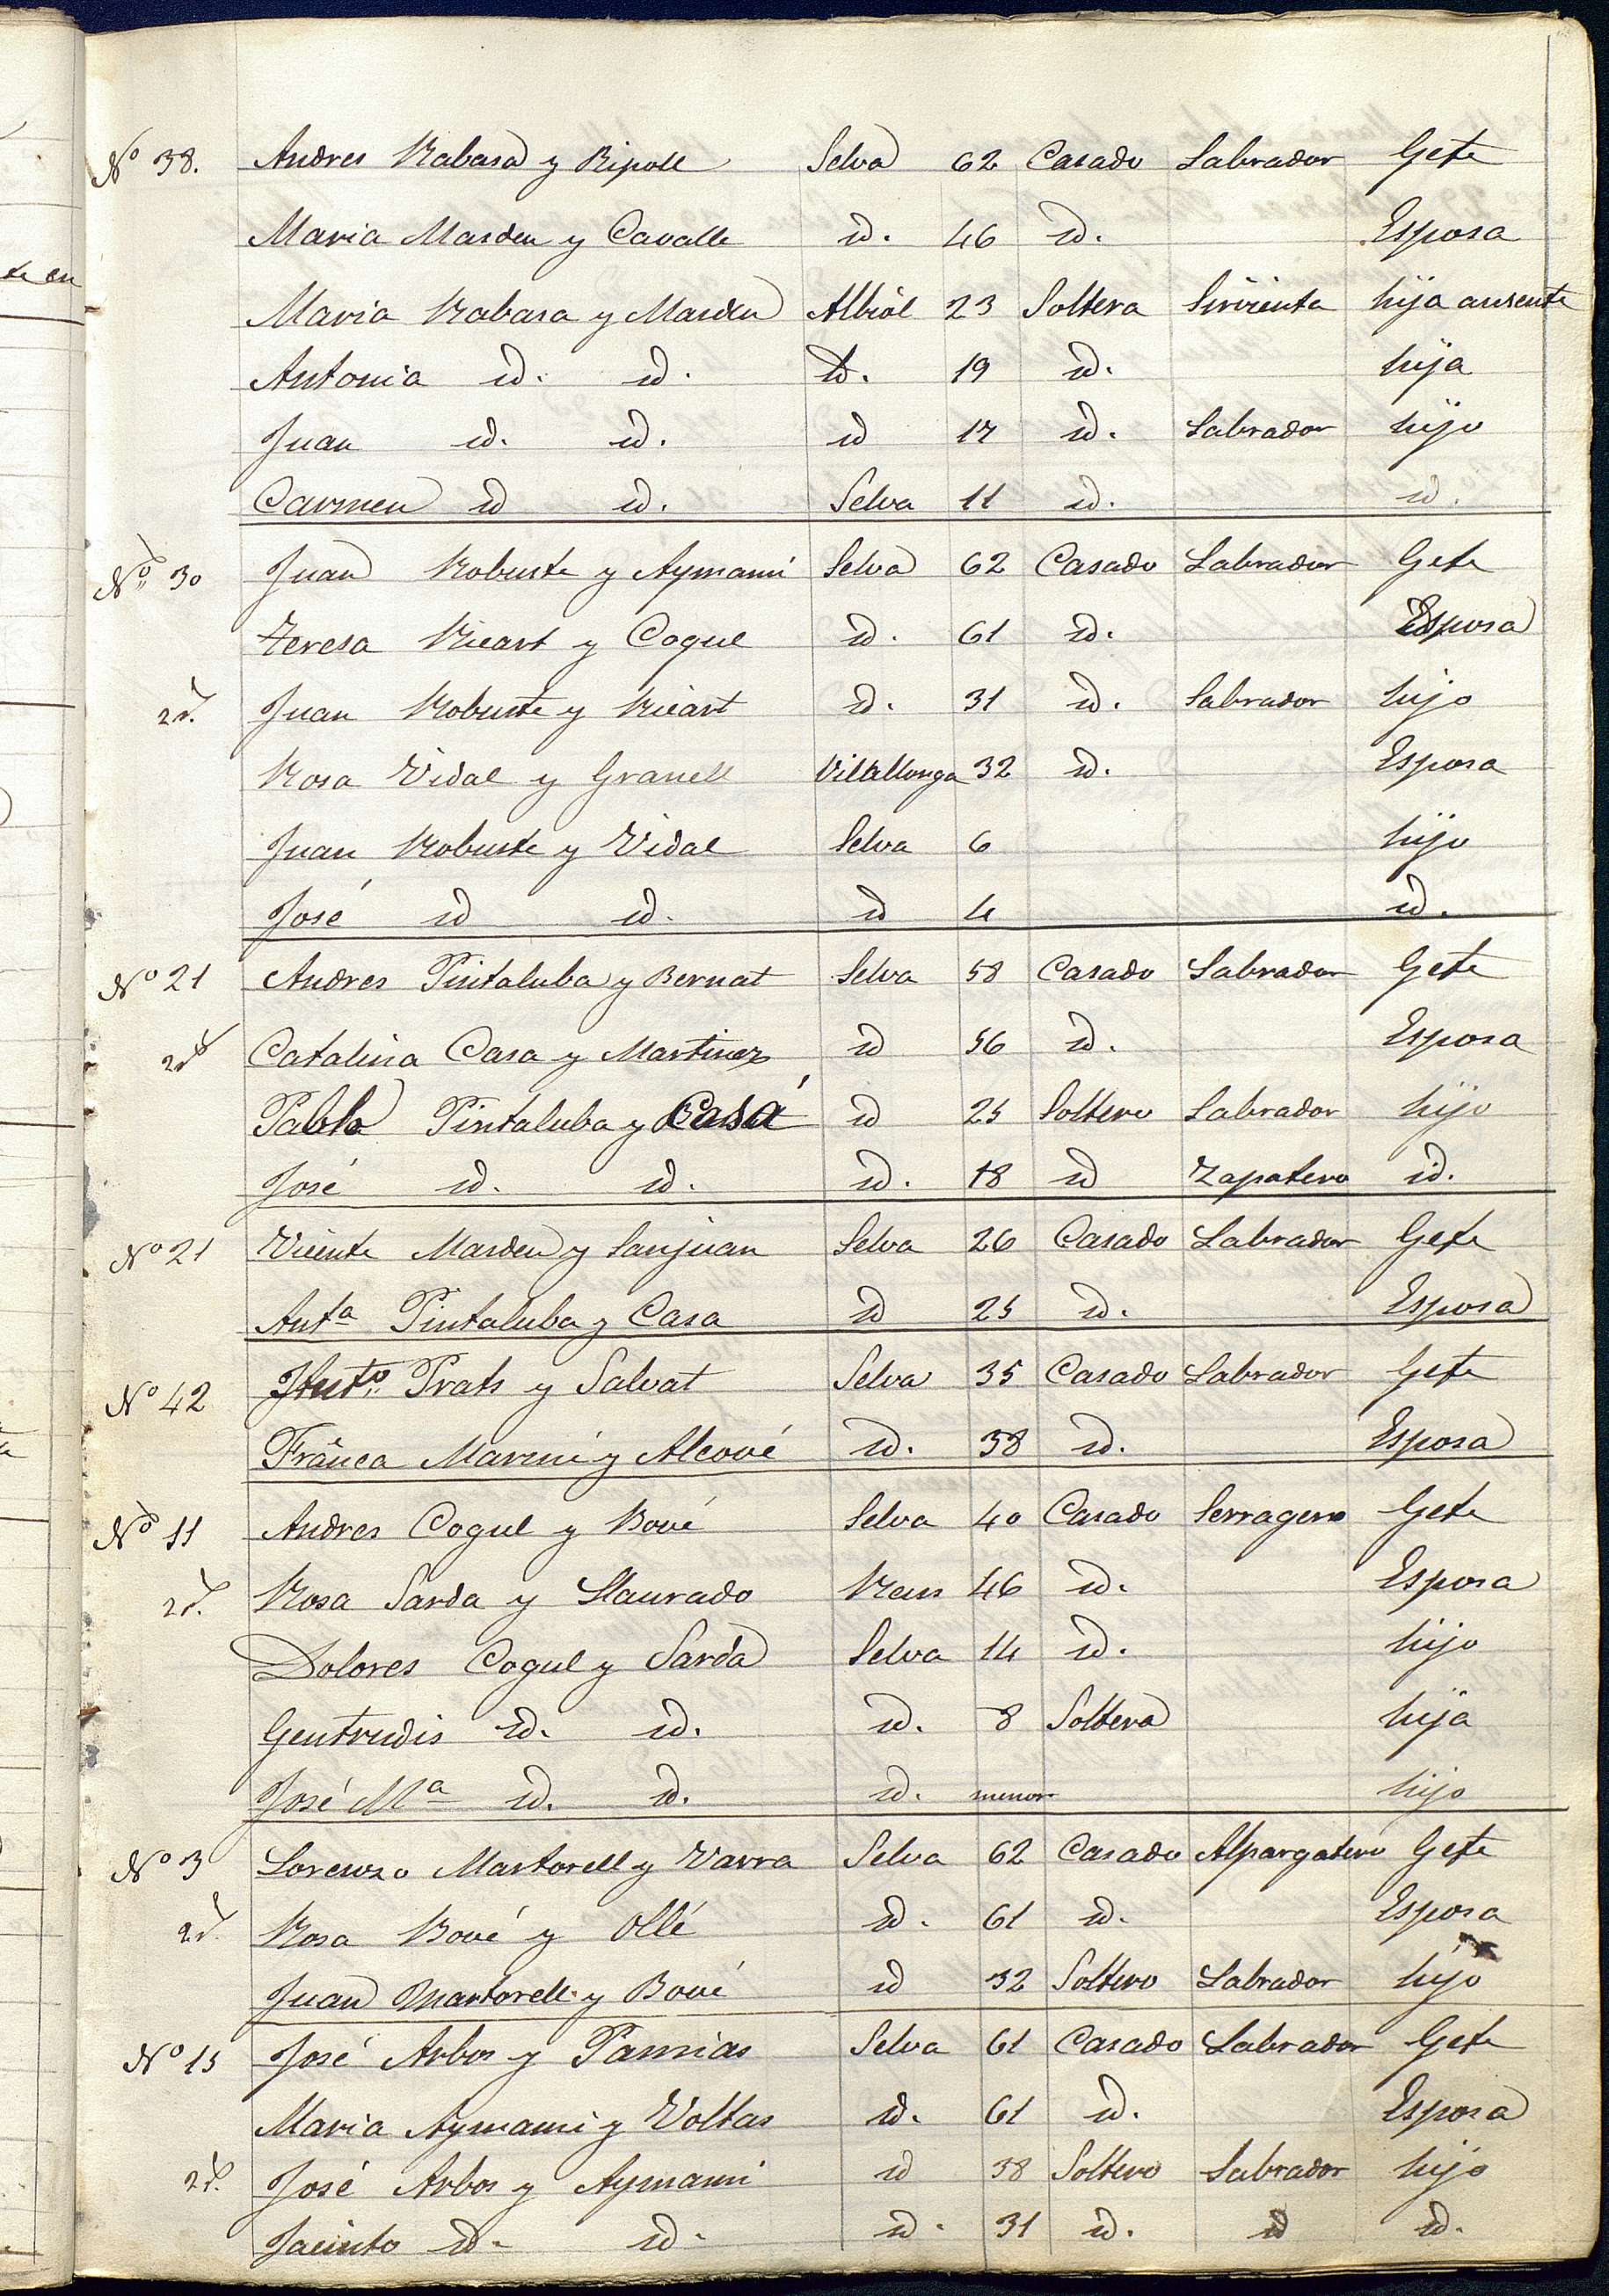 te en
Nº 38. Andres Rabasa y Ripoll Selva 62 Casado Labrador Gefe
Maria Masdeu y Cavalle id. 46 id. Esposa
Maria Rabasa y Masdeu Albiol 23 Soltera Sirvienta hija ausente
Antonia id. id. id. 19 id. hija
Juan id. id. id 17 id. Labrador hijo
Carmen id id. Selva 11 id. id.
Nº 30 Juan Robuste y Aymami Selva 62 Casado Labrador Gefe
Teresa Ricart y Cogul id. 61 id. Esposa
2º. Juan Robuste y Ricart id. 31 id. Labrador hijo
Rosa Vidal y Granell Vilallonga 32 id. Esposa
Juan Robuste y Vidal Selva 6 hijo
José id id. id 4 id.
Nº 21 Andres Pintaluba y Bernat Selva 58 Casado Labrador Gefe
Catalina Casa y Martinez id 56 id. Esposa
Pablo Pintaluba y Casá id 25 Soltero Labrador hijo
José id. id. id. 18 id Zapatero id.
Nº 21 Vicente Masdeu y Sanjuan Selva 26 Casado Labrador Gefe
Antª Pintaluba y Casa id 25 id. Esposa
Nº 42 Antº Prats y Salvat Selva 35 Casado Labrador Gefe
Franca Marmi y Alcové id. 38 id. Esposa
Nº 11 Andres Cogul y Bové Selva 40 Casado Serragero Gefe
Rosa Sarda y Llaurado Reus 46 id. Esposa
Dolores Cogul y Sarda Selva 14 id. hijo
Gentrudis id. id. id. 8 Soltera hija
José Mª id. id. id. menor hijo
Nº 3 Lorenzo Martorell y Varra Selva 62 Casado Alpargatero Gefe
Rosa Bové y Ollé id. 61 id. Esposa
Juan Martorell y Bové id 32 Soltero Labrador hijo
Nº 15 José Arbos y Pamias Selva 61 Casado Labrador Gefe
Maria Aymami y Voltas id. 61 id. Esposa
José Arbos y Aymami id 38 Soltero Labrador hijo
Jacinto id. id. id. 31 id. id id.